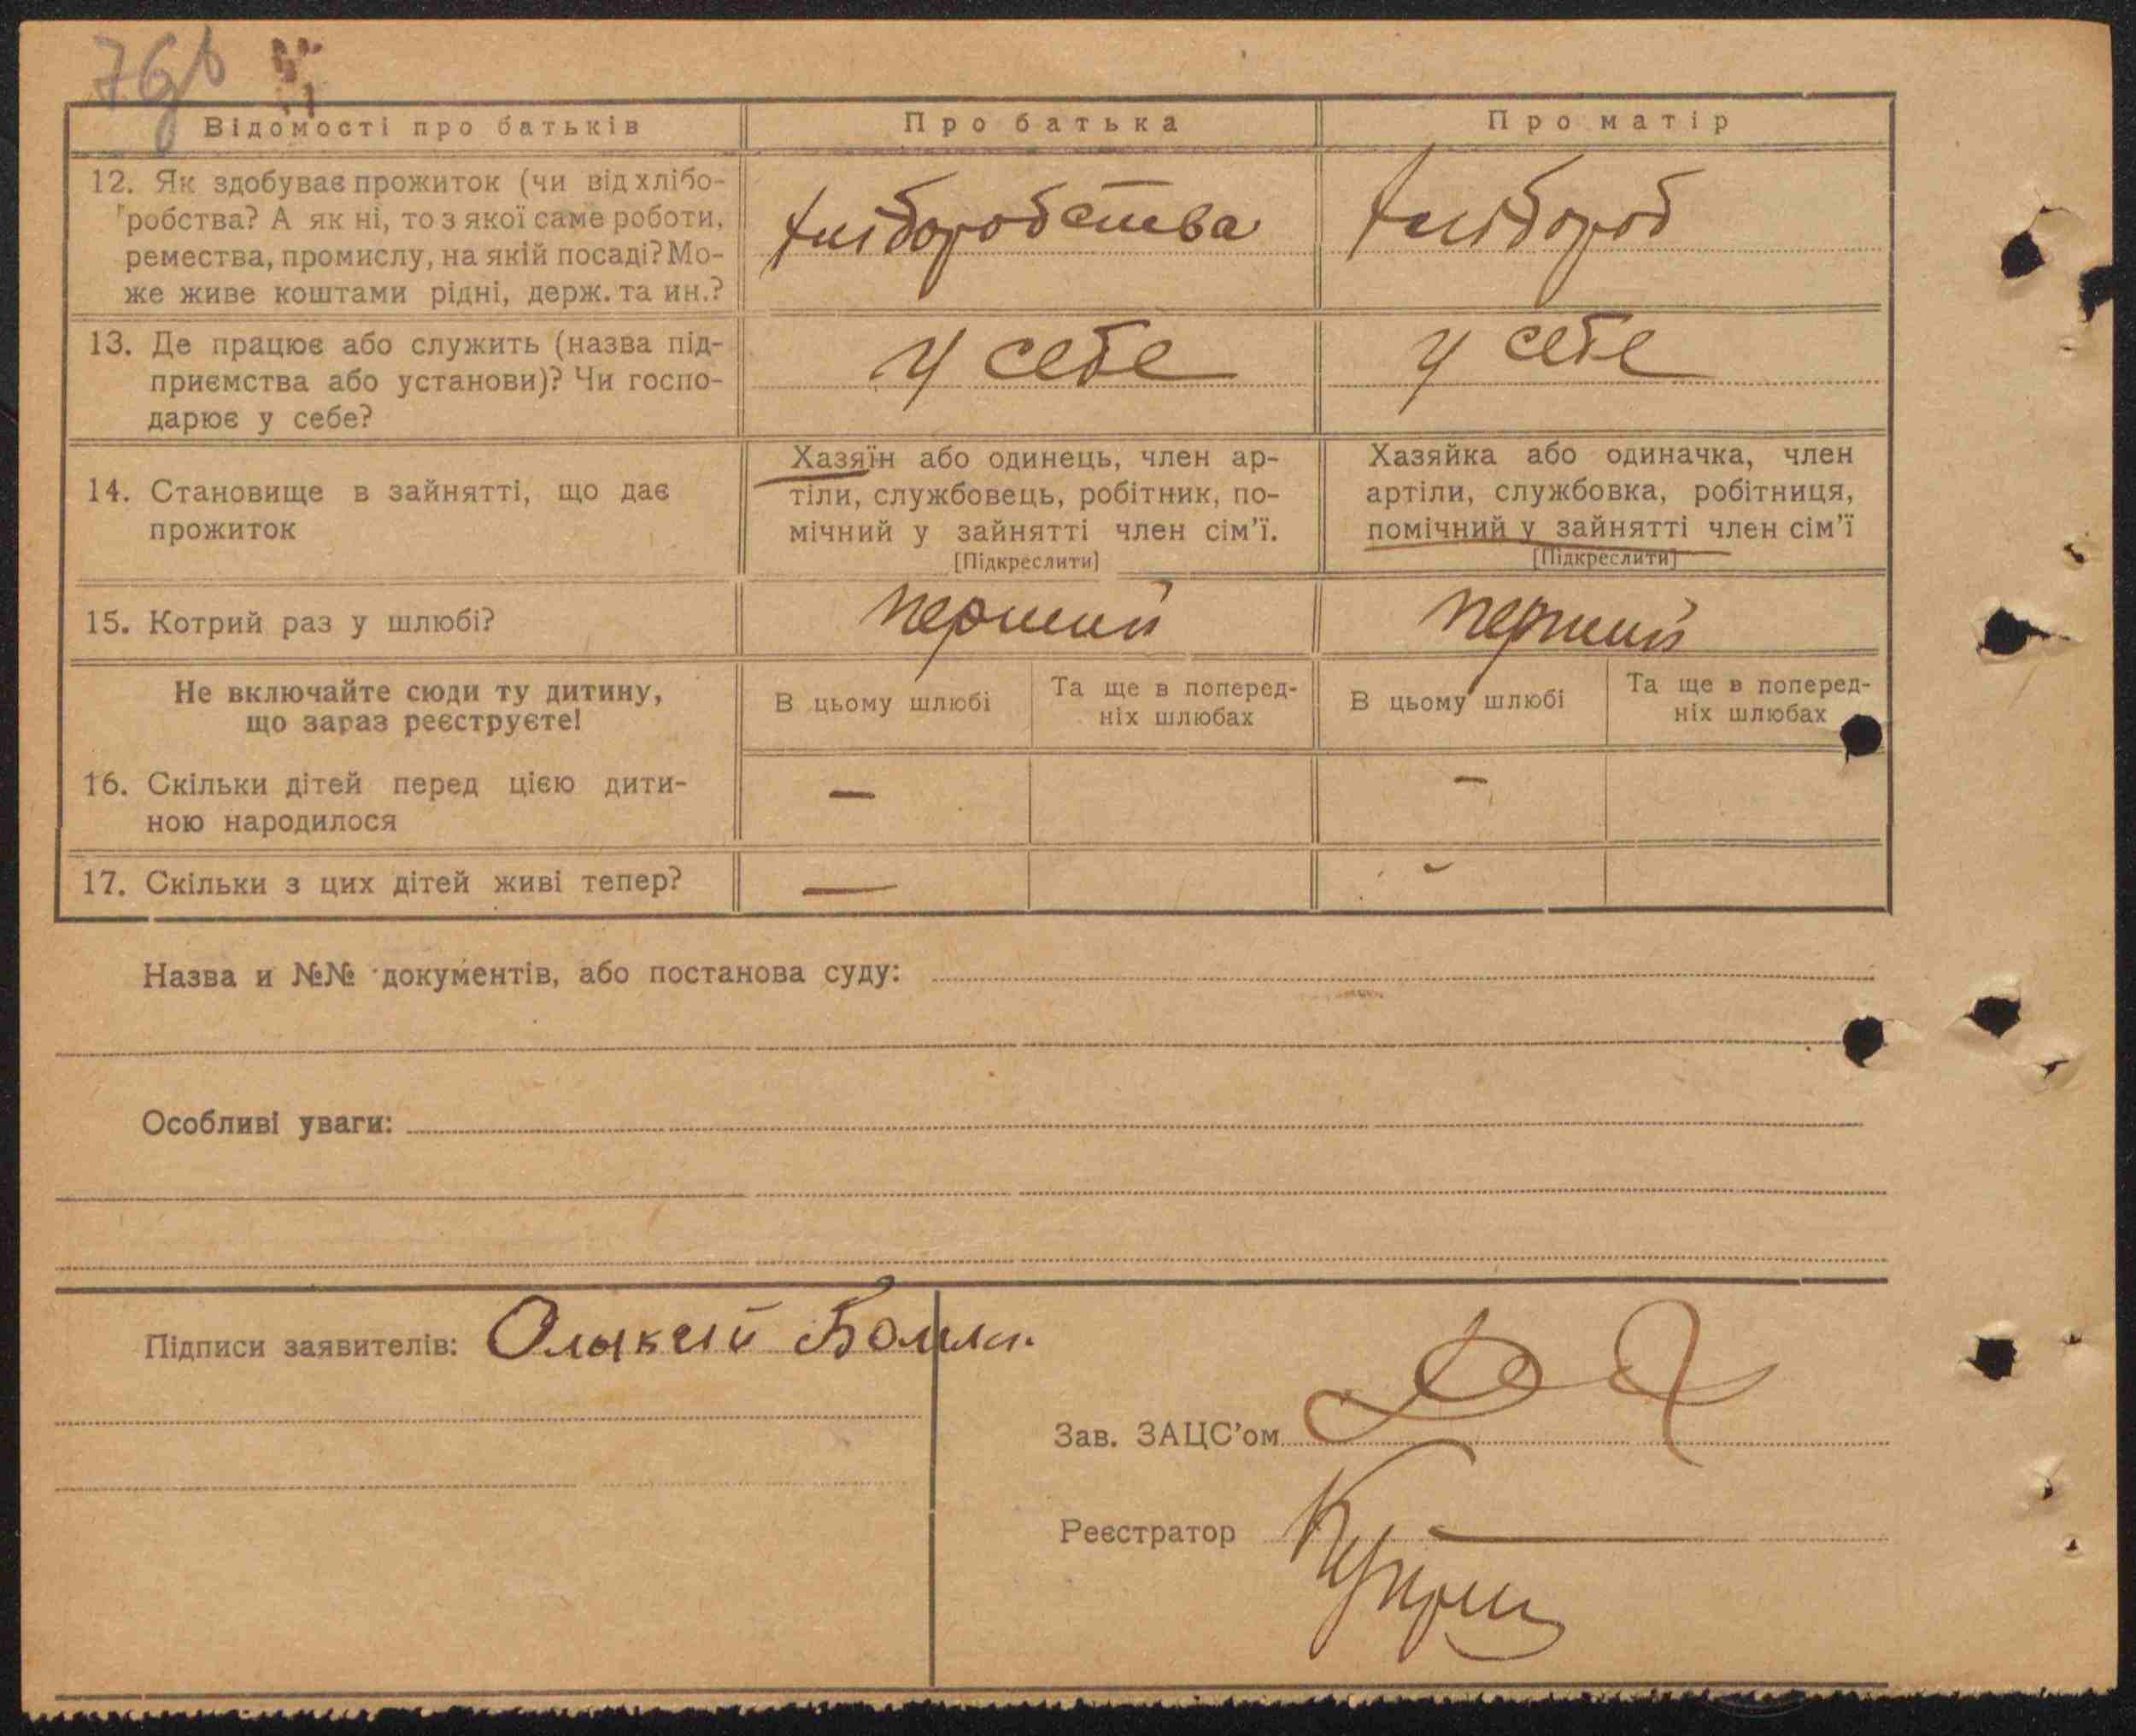 Відомості про батьків Про батька Про матір
12. Як здобуває прожиток (чи від хлібо-
робства? А як ні, то з якої саме роботи,
ремества, промислу, на якій посаді? Мо-
же живе коштами рідні, держ. та ин.?
хліборобства хлібороб
13. Де працює або служить (назва під-
приємства або установи)? Чи госпо-
дарює у себе?
у себе у себе
14. Становище в зайнятті, що дає
прожиток
Хазяїн або одинець, член ар-
тіли, службовець, робітник, по-
мічний у зайнятті член сім'ї.
[Підкреслити]
Хазяйка або одиначка, член
артіли, службовка, робітниця,
помічний у зайнятті член сім'ї
[Підкреслити]
15. Котрий раз у шлюбі? перший перший
Не включайте сюди ту дитину,
що зараз реєструєте!
В цьому шлюбі
Та ще в поперед-
ніх шлюбах
В цьому шлюбі
Та ще в поперед-
ніх шлюбах
16. Скільки дітей перед цією дити-
ною народилося
— —
17. Скільки з цих дітей живі тепер? — -
Назва и №№ документів, або постанова суду:
Особливі уваги:
Підписи заявителів:
Зав. ЗАЦС'ом
Реєстратор